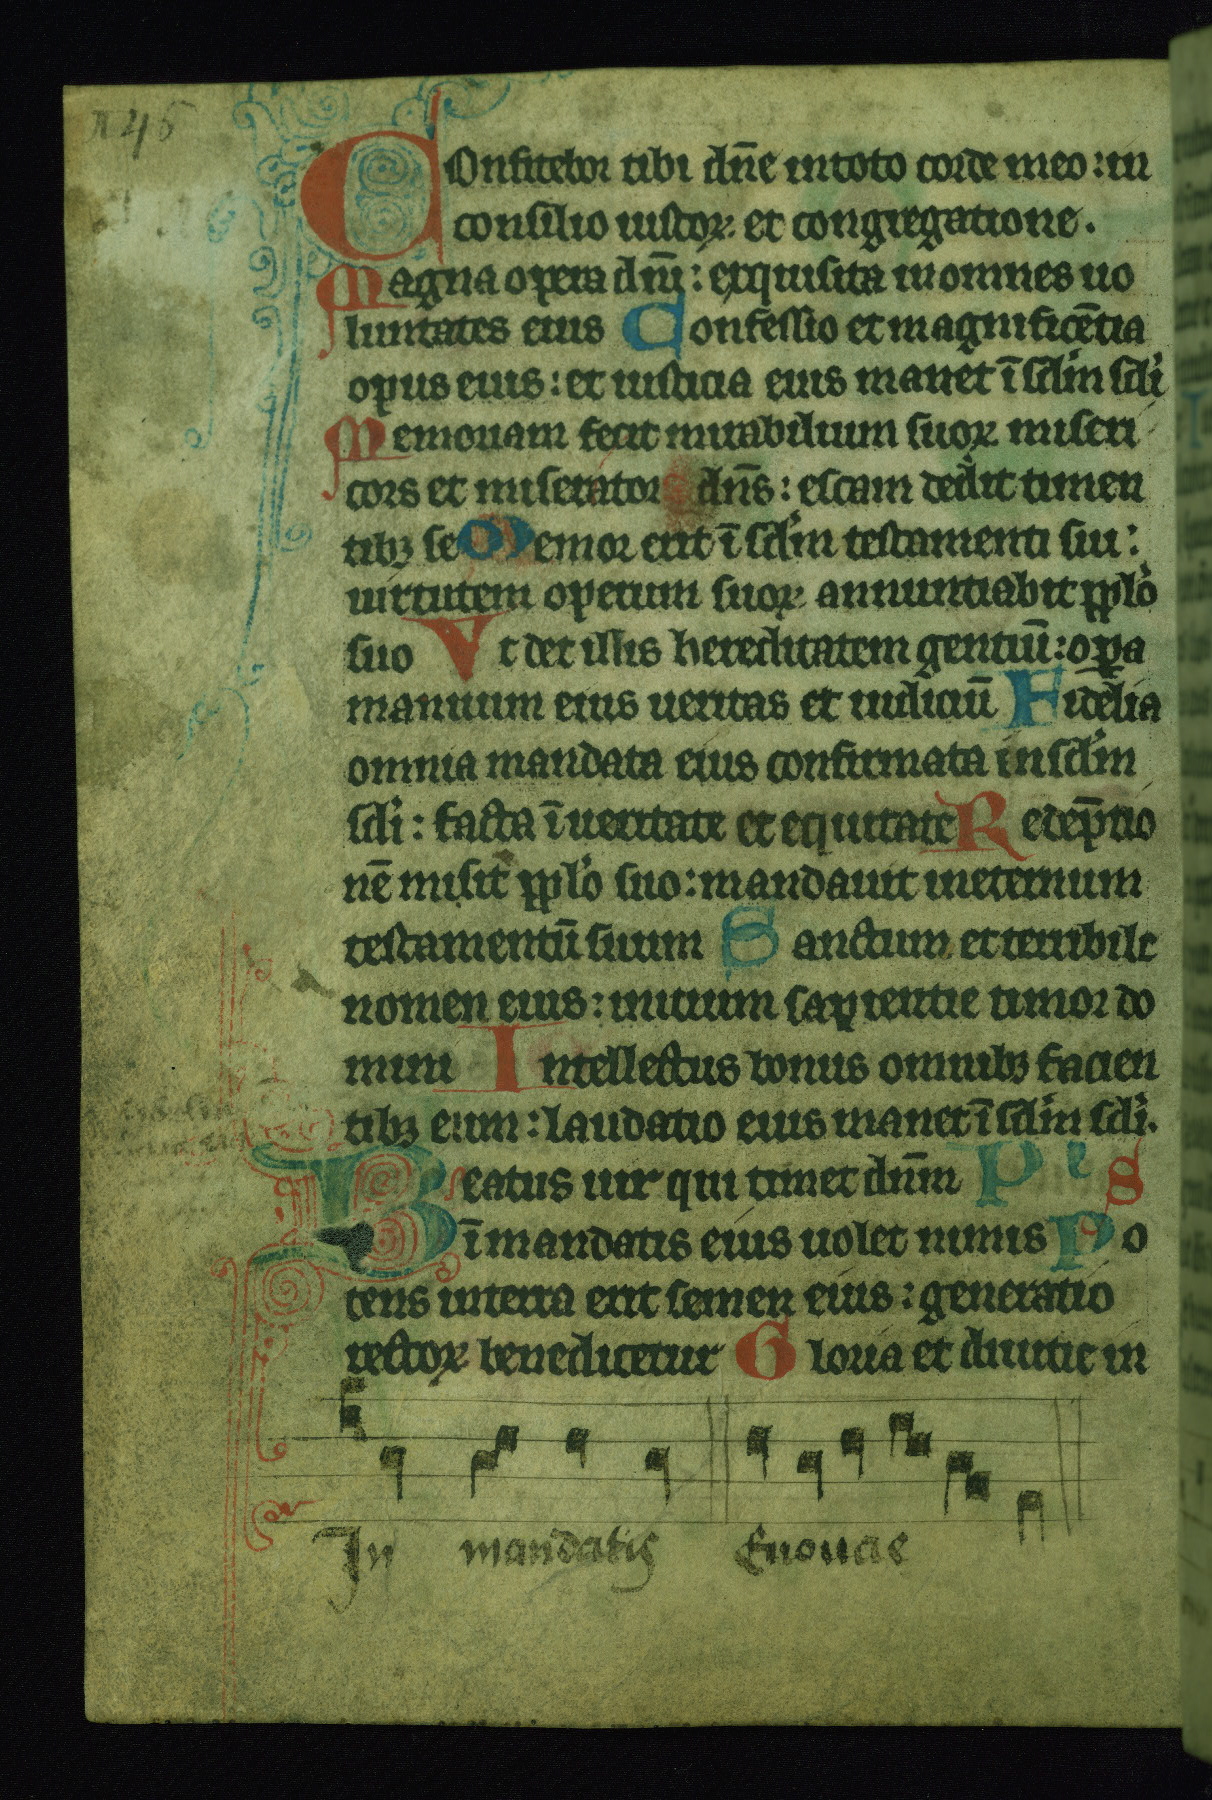 Confitebor tibi dn̄e in toto corde meo : in
consilio iustoꝝ et congregatione.
Magna opera dn̄i : exquisita in omnes uo
luntates eius Confessio et magnificētia
opus eius : et iusticia eius manet ī sclm̄ scli
Memoriam fecit mirabilium suoꝝ miseri
cors et miserator dn̄s : escam dedit timen
tibꝫ se Memor erit ī sclm̄ testamenti sui :
uirtutem operum suoꝝ annuntiabit pplo
suo Vt det illis hereditatem gentiū : oꝑa
manuum eius ueritas et iudiciū Fidelia
omnia mandata eius confirmata in sclm̄
scli : facta ī ueritate et equitate Redēptio
nē misit pplo suo : mandauit in eternum
testamentū suum Sanctum et terribile
nomen eius : initium sapientie timor do
mini Intellectus bonus omnibꝫ facien
tibꝫ eum : laudatio eius manet ī sclm̄ scli.
Beatus uir qui timet dn̄m Ps
ī mandatis eius uolet nimis Po
tens in terra erit semen eius : generatio
rectoꝝ benedicetur Gloria et diuitie in
In mandatis Euouae